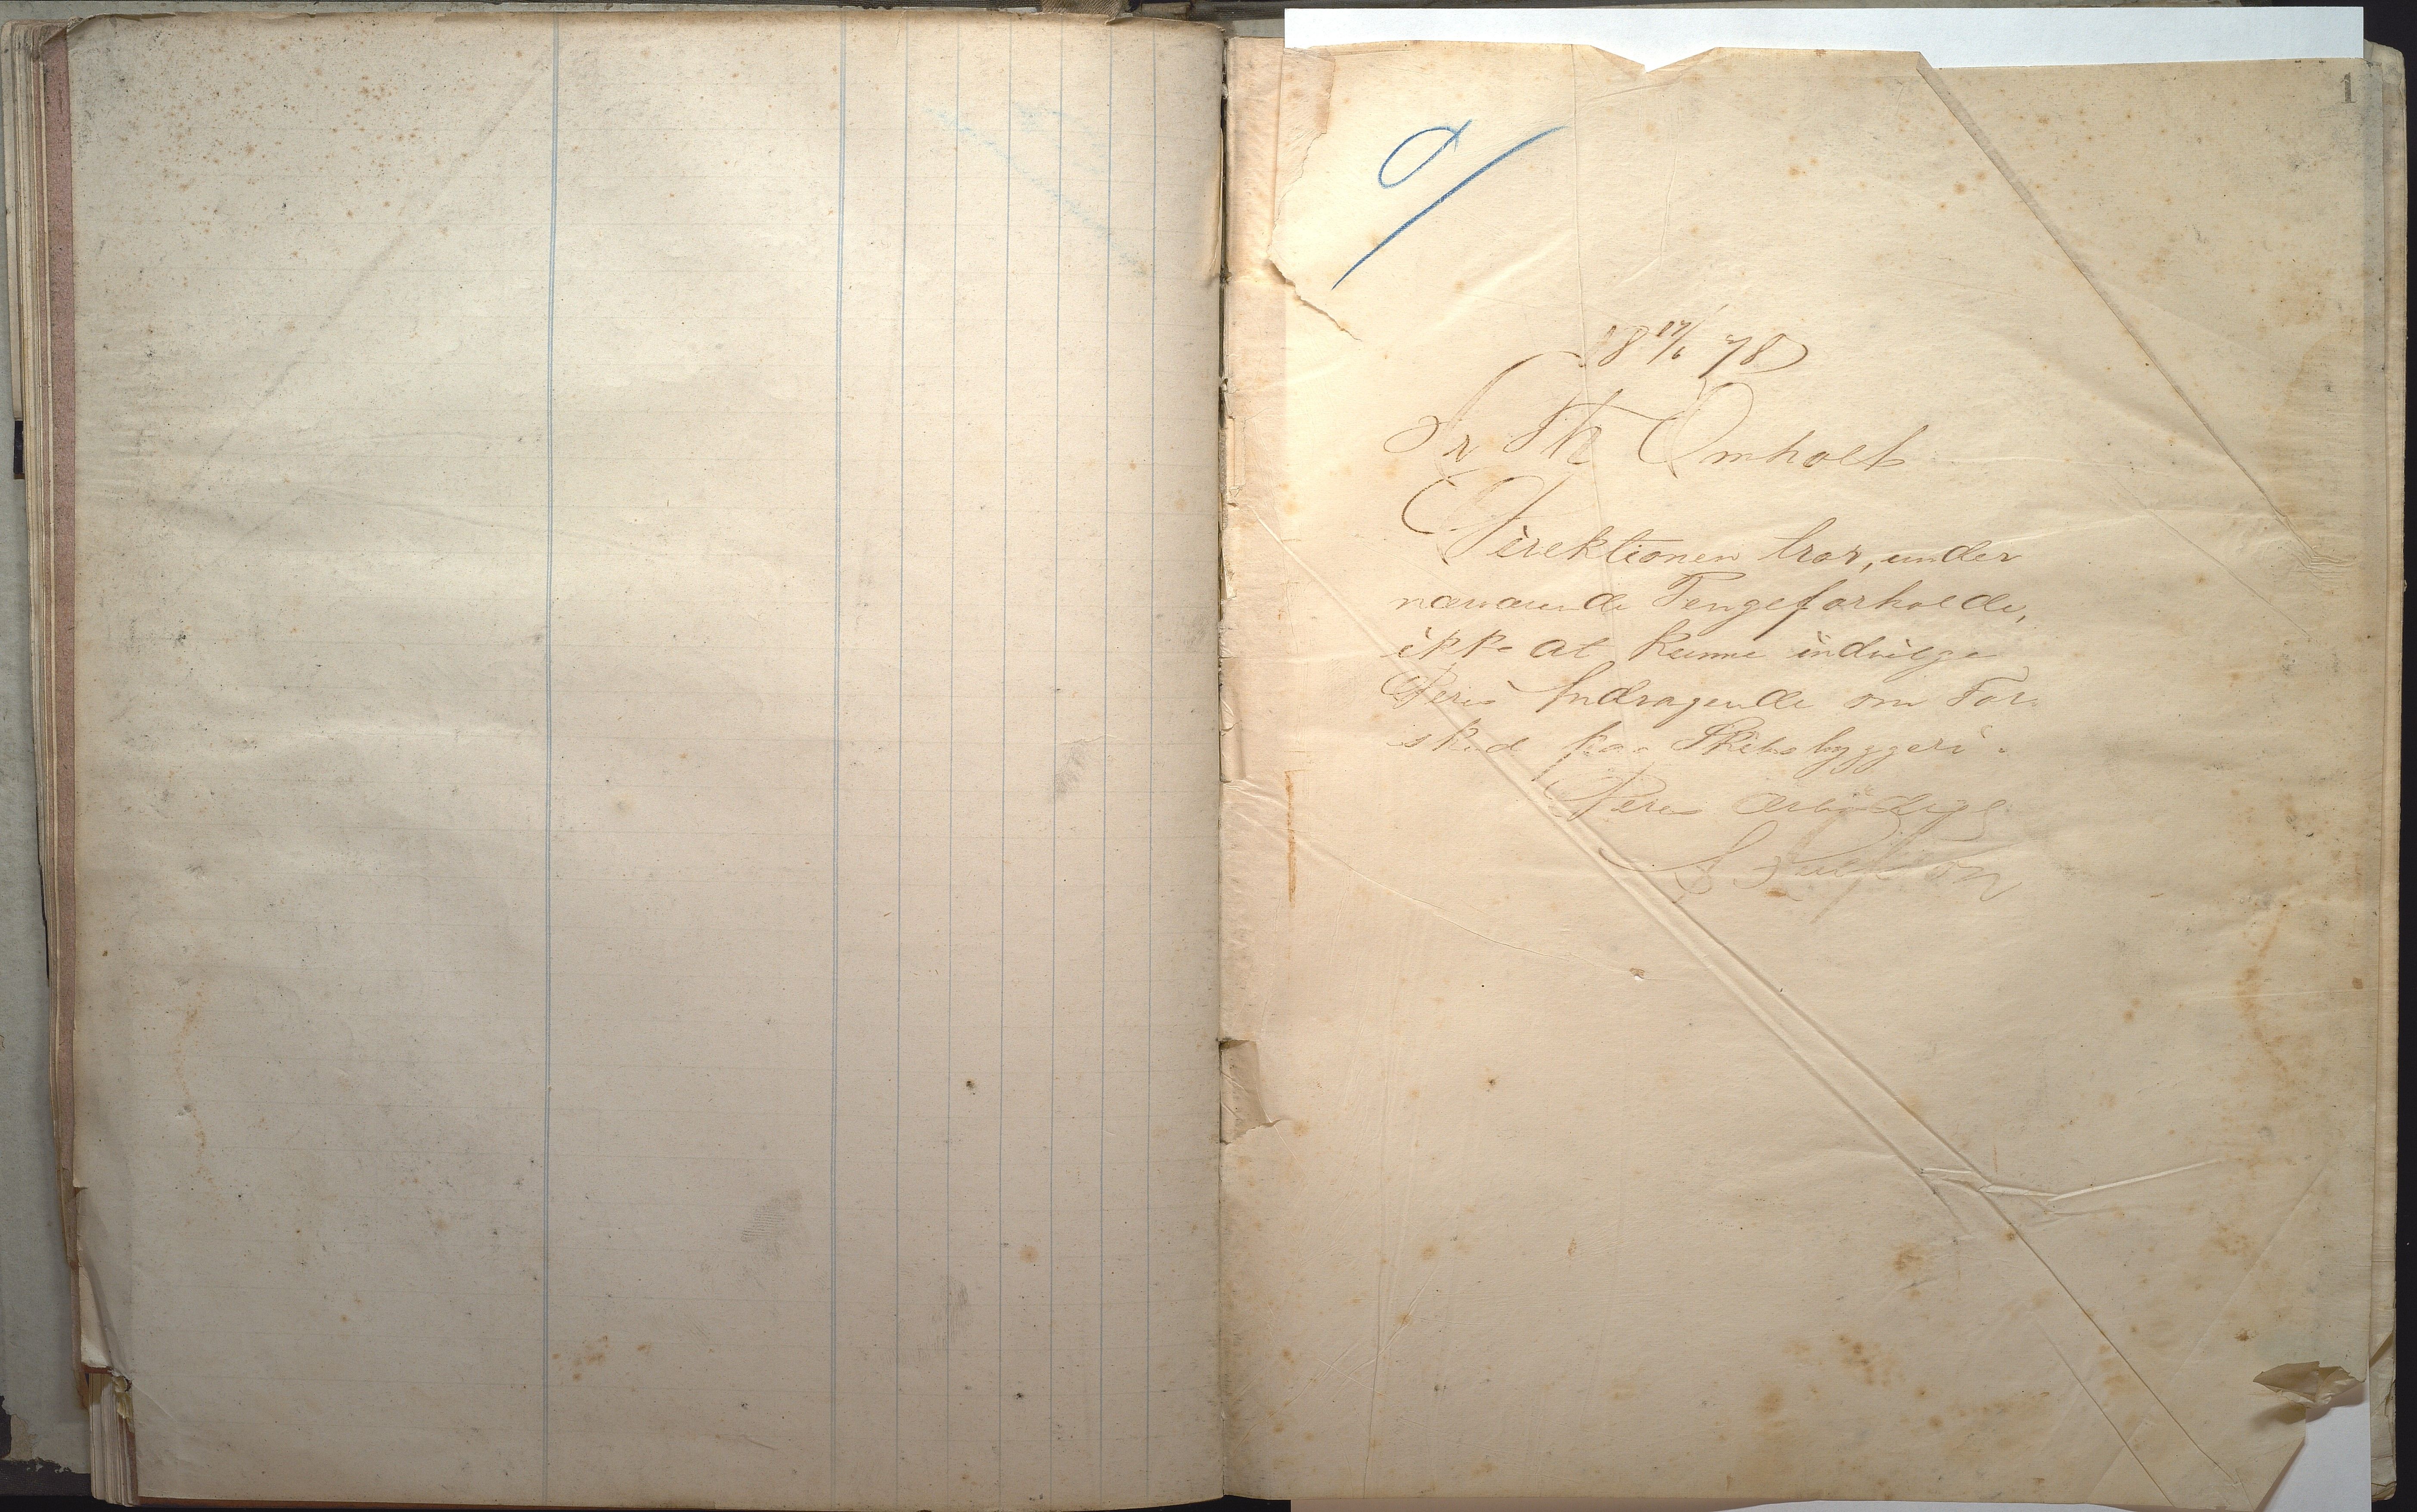 1
18 17/6 78
Hr Th Omholt
Direktionen tror, under
nærværende Pengeforholde,
ikke at kunne indvilge
Deres Andragende om For-
skud paa Skibsbyggeri.
Deres ærbødige